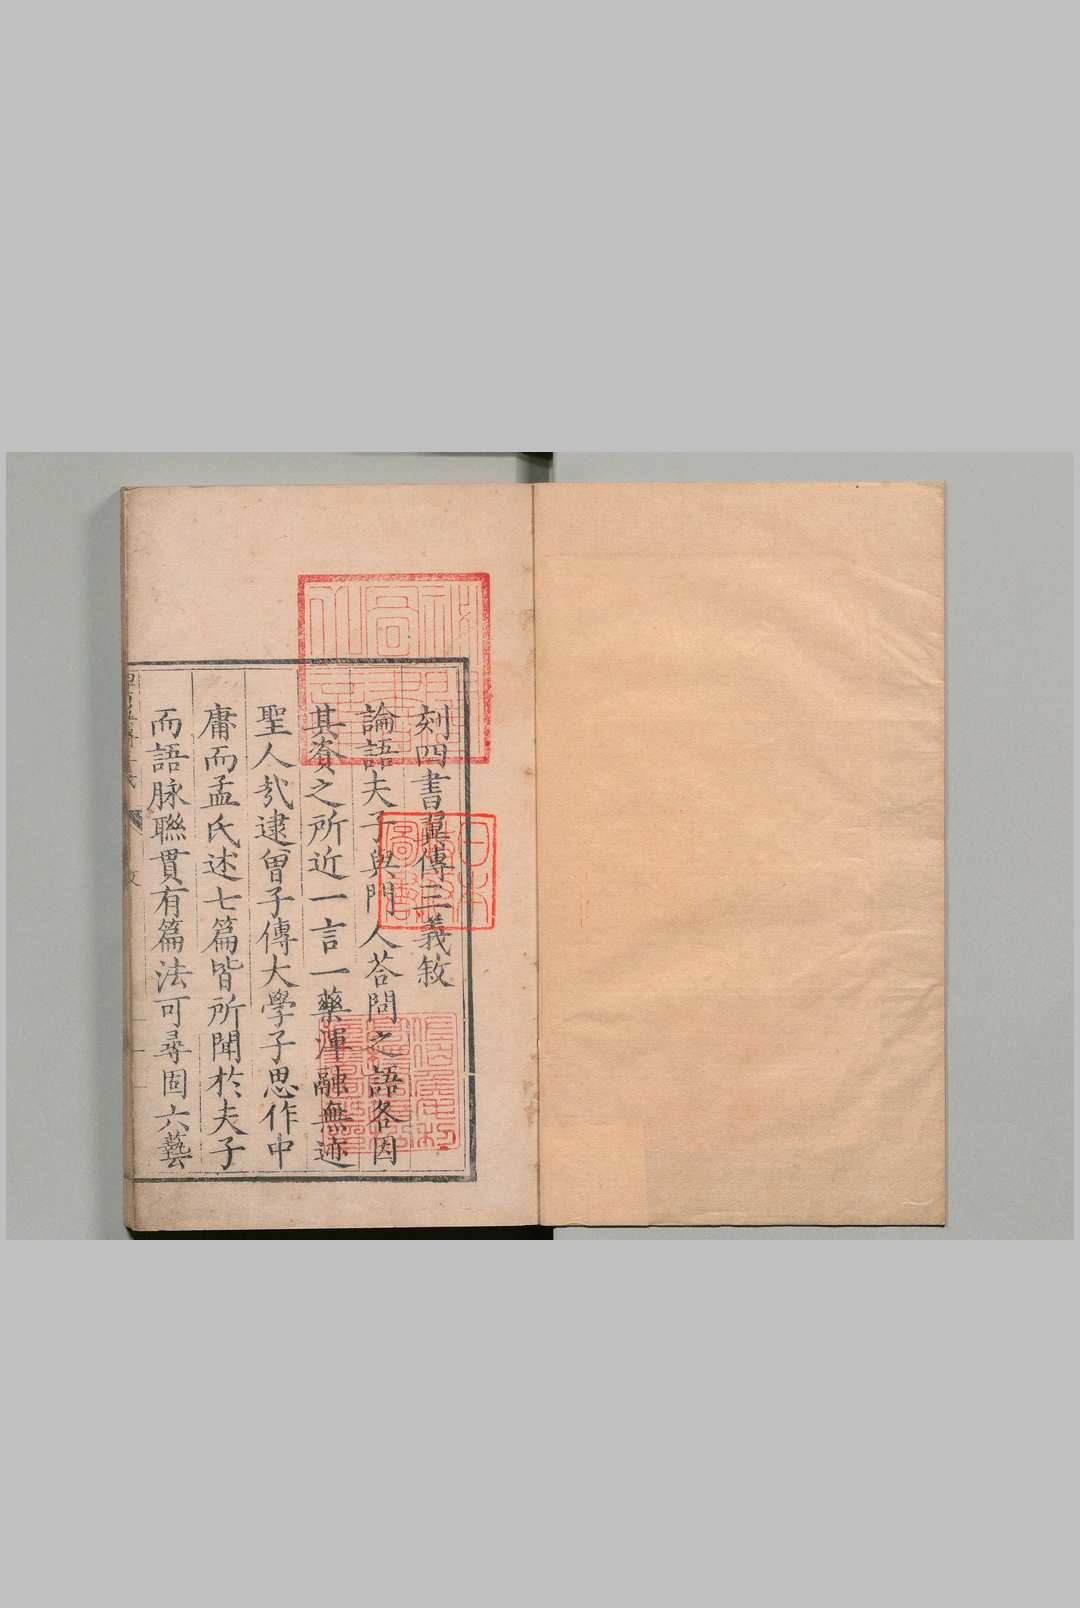 刻四書翼傳三義敘
論語夫子與門人荅問之語各因
其資之所近一言一藥渾融無迹
聖人哉逮曾子傳大學子思作中
庸而孟氏述七篇皆所聞於夫子
而語脉聯貫有篇法可尋固六藝
日本
政府
圖書